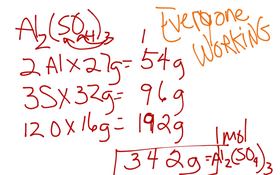 Al₂(SO₄)₃
Everyone
WORKING
2 Al x 27g = 54g
3 S x 32g = 96g
12 O x 16g = 192g
1 mol
342g = Al₂(SO₄)₃